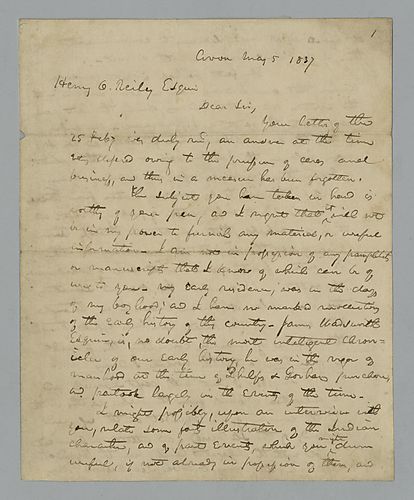 1
Avon May 5 1837
Henry O. Reily Esquire
Dear Sir,
Your letter of the
25 Feby was duly recd, an answer at the time
was defered owing to the pressure of cares and
business, and this in a measure has been forgotten.
The subject you have taken in hand is
worthy of your pen, and I regret that it will not
be in my power to furnish any material, or useful
information. I am not in possession of any pamphlets
or manuscripts that I know of which can be of
use to you. My early residence, was in the days
of my boyhood, and I have no marked recollection
of the early history of this country. James Wadsworth
Esquire, is, no doubt, the most intelligent Chron-
icler of our Early history, he was in the vigor of
manhood at the time of Phelps & Gorham purchase,
and partook largely in the Events of the time.
I might possibly, upon an interview with
you, relate some facts illustration of the Indian
character, and of past Events, which you might deem
useful, if not already in possession of them, and